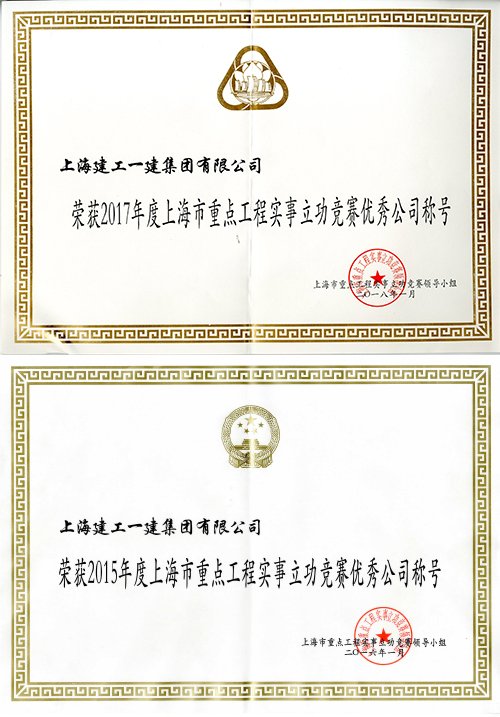 上海建工一建集团有限公司
荣获2017年度上海市重点工程实事立功竞赛优秀公司称号
上海市重点工程实事立功竞赛领导小组
二〇一八年一月
上海建工一建集团有限公司
荣获2015年度上海市重点工程实事立功竞赛优秀公司称号
上海市重点工程实事立功竞赛领导小组
二〇一六年一月